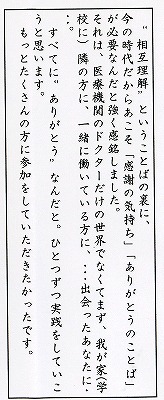 “相互理解”ということばの裏に、
今の時代だからあこそ「感謝の気持ち」「ありがとうのことば」
が必要なんだと強く感銘しました。
それは、医療機関のドクターだけの世界でなくてまず、我が家（学
校に）隣の方に、一緒に働いている方に、・・・出会ったあなたに・
・・。
すべてに“ありがとう”なんだと。ひとつずつ実践をしていこ
うと思います。
もっとたくさんの方に参加をしていただきたかったです。